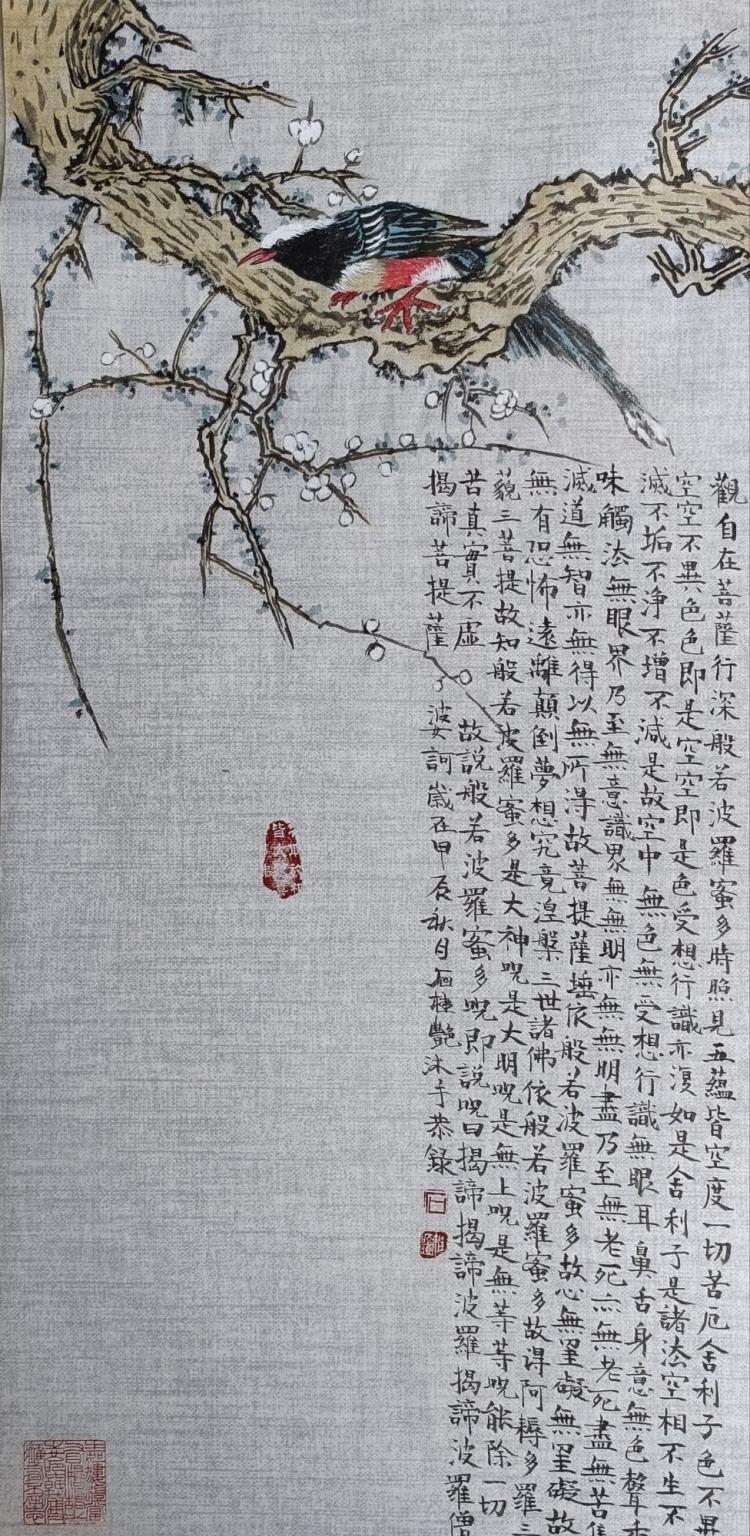 觀自在菩薩行深般若波羅蜜多時照見五蘊皆空度一切苦厄舍利子色不異
空空不異色色即是空空即是色受想行識亦復如是舍利子是諸法空相不生不
滅不垢不淨不增不減是故空中無色無受想行識無眼耳鼻舌身意無色聲香
味觸法無眼界乃至無意識界無無明亦無無明盡乃至無老死亦無老死盡無苦集
滅道無智亦無得以無所得故菩提薩埵依般若波羅蜜多故心無罣礙無罣礙故
無有恐怖遠離顛倒夢想究竟涅槃三世諸佛依般若波羅蜜多故得阿耨多羅三
藐三菩提故知般若波羅蜜多是大神咒是大明咒是無上咒是無等等咒能除一切
苦真實不虛故説般若波羅蜜多咒即説咒曰揭諦揭諦波羅揭諦波羅僧
揭諦菩提薩婆訶歲在甲辰秋月石桂艷沐手恭錄
石